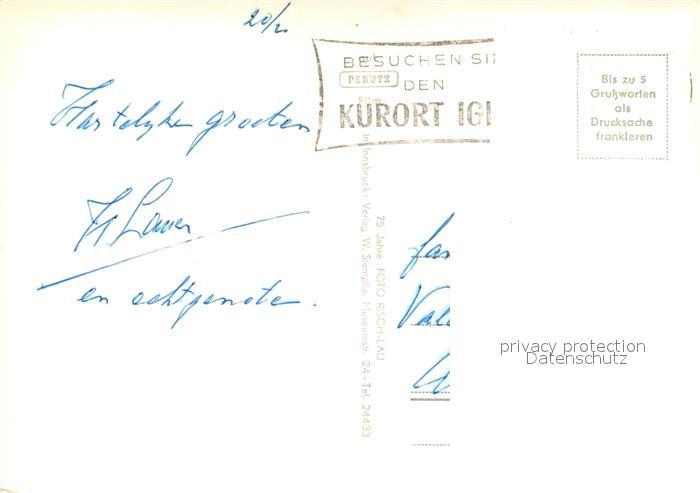 20/2
BESUCHEN SIE
DEN
KURORT IGL
PERUTZ
Bis zu 5
Grußworten
als
Drucksache
frankieren
Hartelyke groeten
en echtgenote.
75 Jahre FOTO RISCH-LAU
In Innsbruck: Verlag W. Stempfle, Museumstr. 24 - Tel. 24433
privacy protection
Datenschutz